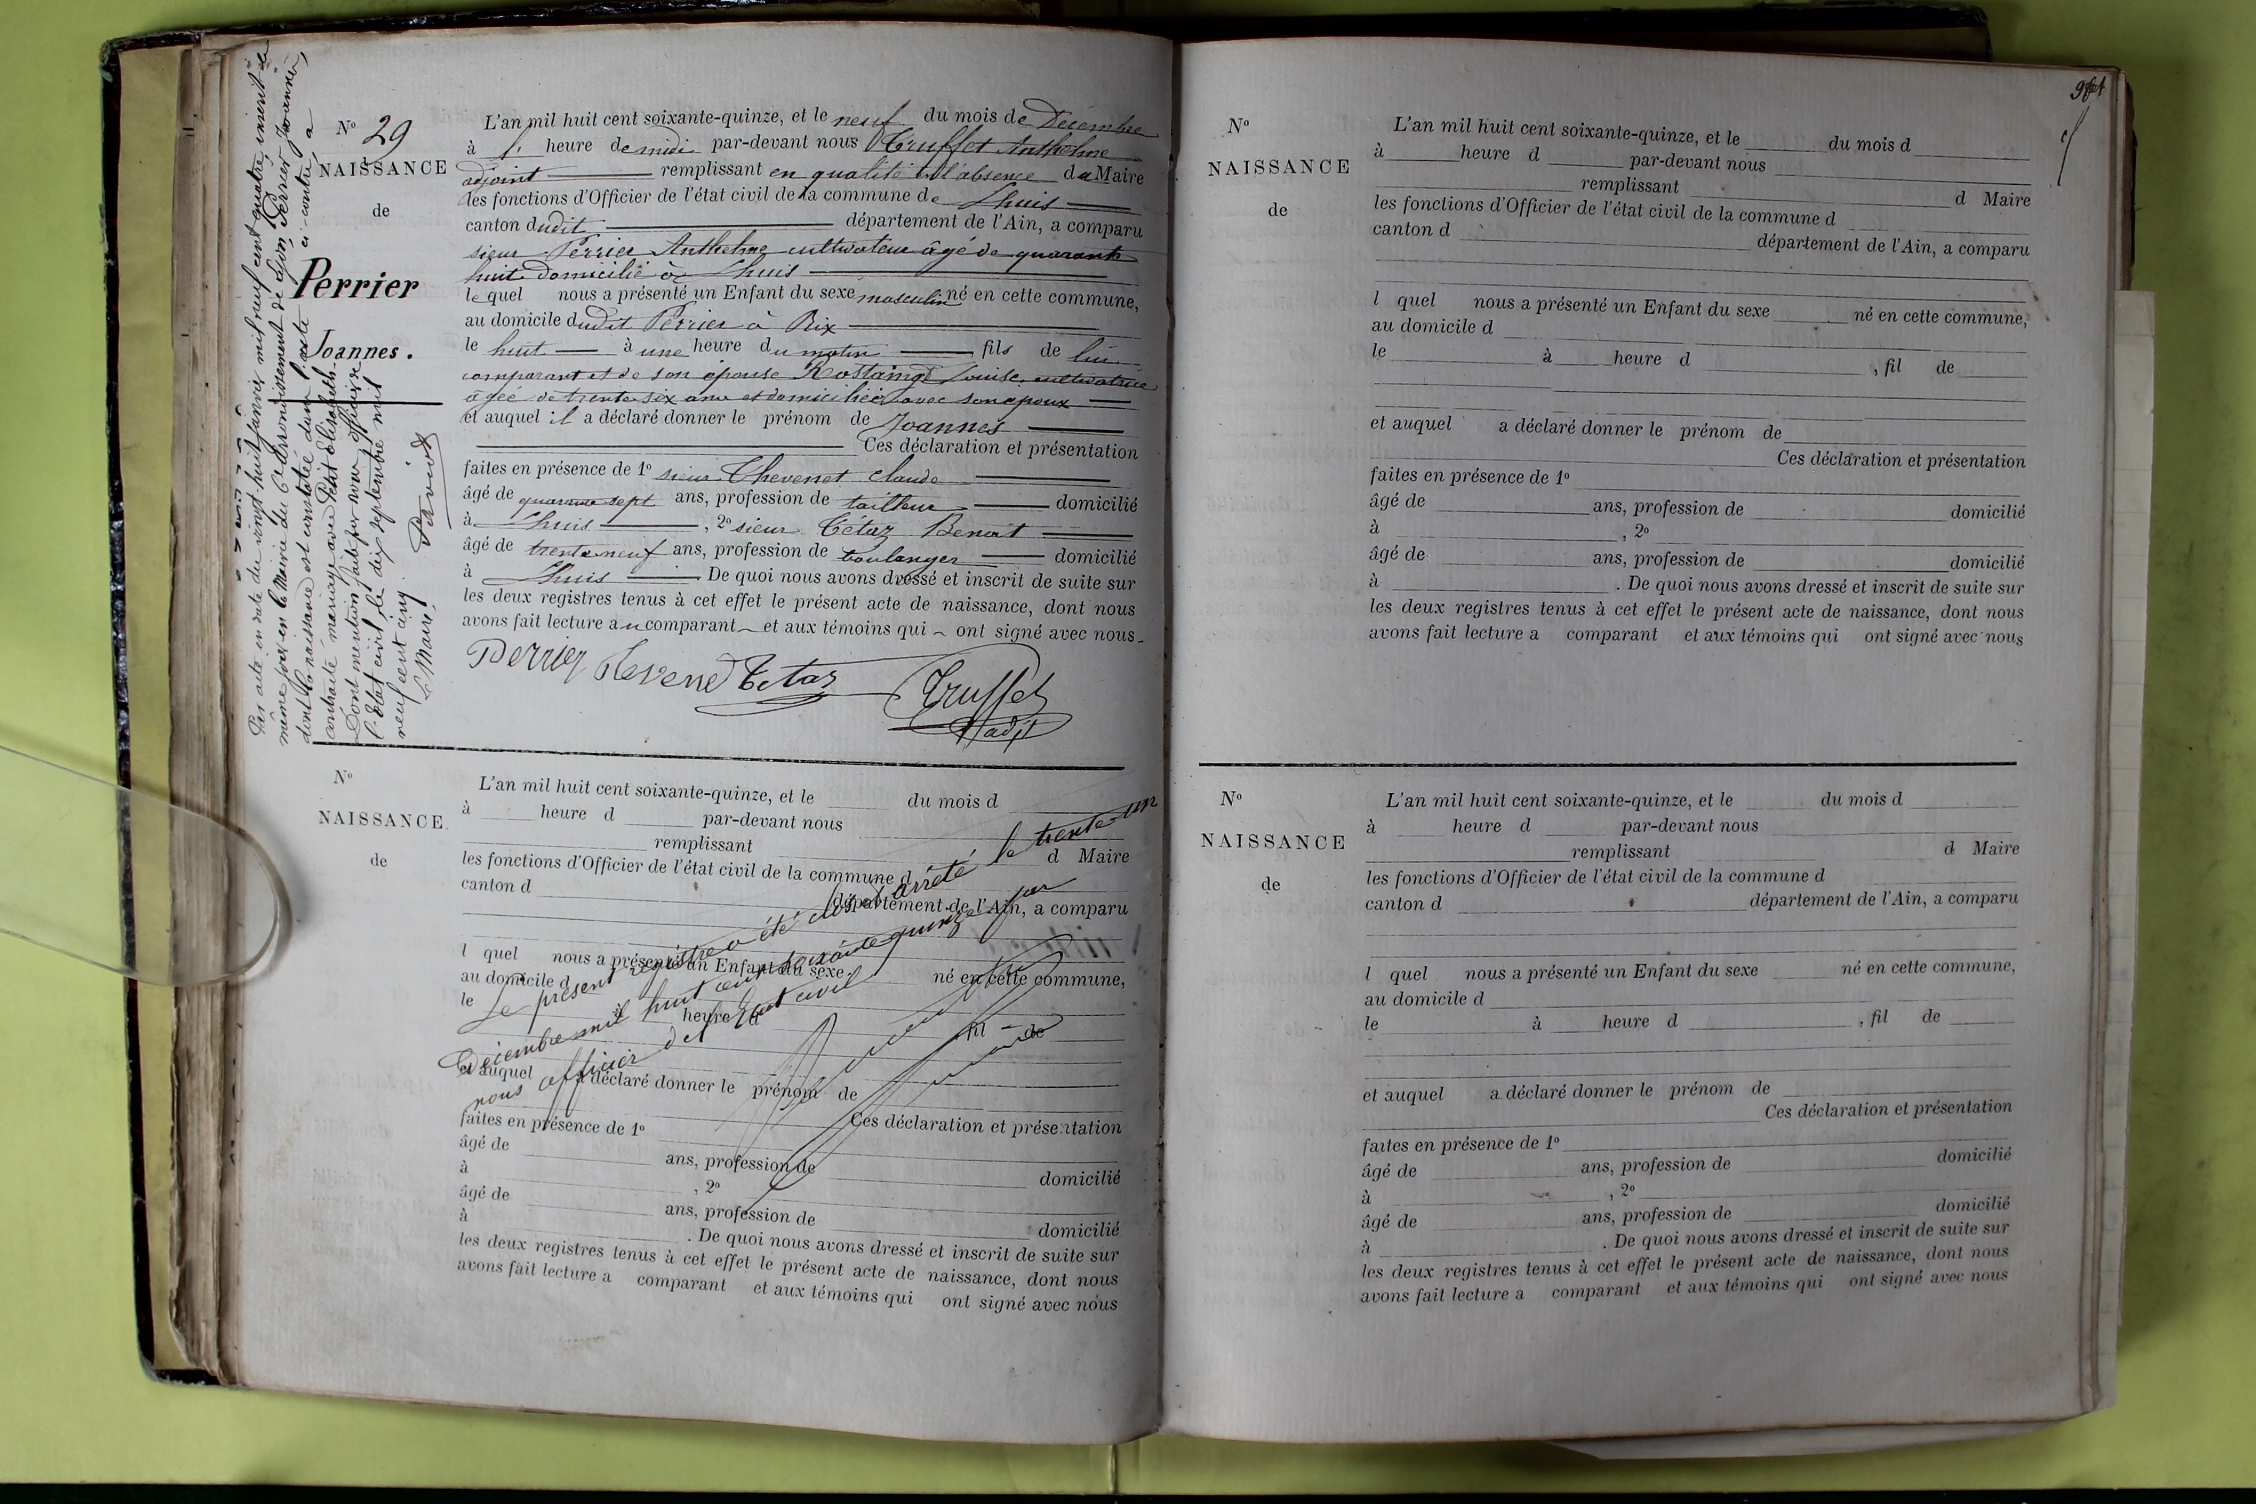 Nº 29
NAISSANCE
de
Perrier
Joannes.
Par acte en date du vingt huit janvier mil neuf cent quatre inscrit le
même jour en la Mairie du 6e arrondissement de Lyon, Perrier Joannes,
dont la naissance est constatée dans l'acte ci-contre, a
contracté mariage avec Petit Elisabeth.
Dont mention faite par nous officier de
l'Etat civil, le dix septembre mil
neuf cent cinq.
Le Maire,
L'an mil huit cent soixante-quinze, et le neuf du mois de Décembre
à heure de midi par-devant nous Truffet Anthelme
adjoint remplissant en qualité l'absence du Maire
les fonctions d'Officier de l'état civil de la commune de Lhuis
canton dudit département de l'Ain, a comparu
sieur Perrier Anthelme cultivateur âgé de quarante
huit domicilié à Lhuis
lequel nous a présenté un Enfant du sexe masculin né en cette commune,
au domicile dudit Perrier à Rix
le huit à une heure du matin fils de lui
comparant et de son épouse Rostaing Louise, cultivatrice
âgée de trente six ans et domiciliée avec son époux
et auquel il a déclaré donner le prénom de Joannes
Ces déclaration et présentation
faites en présence de 1º sieur Thevenet Claude
âgé de quarante sept ans, profession de tailleur domicilié
à Lhuis , 2º sieur Tétaz Benoit
âgé de trente neuf ans, profession de boulanger domicilié
à Lhuis De quoi nous avons dressé et inscrit de suite sur
les deux registres tenus à cet effet le présent acte de naissance, dont nous
avons fait lecture au comparant et aux témoins qui ont signé avec nous.
Perrier Tevene Tetaz Truffet
adjt
Nº
NAISSANCE
de
L'an mil huit cent soixante-quinze, et le du mois d
à heure d par-devant nous
remplissant d Maire
les fonctions d'Officier de l'état civil de la commune d
canton d département de l'Ain, a comparu
l quel nous a présenté un Enfant du sexe né en cette commune,
au domicile d
le à heure d fil de
et auquel a déclaré donner le prénom de
Ces déclaration et présentation
faites en présence de 1º
âgé de ans, profession de domicilié
à , 2º
âgé de ans, profession de domicilié
à . De quoi nous avons dressé et inscrit de suite sur
les deux registres tenus à cet effet le présent acte de naissance, dont nous
avons fait lecture a comparant et aux témoins qui ont signé avec nous
Le présent registre a été clos et arrêté le trente un
Décembre mil huit cent soixante quinze par
nous officier de l'Etat civil
Nº
NAISSANCE
de
L'an mil huit cent soixante-quinze, et le du mois d
à heure d par-devant nous
remplissant d Maire
les fonctions d'Officier de l'état civil de la commune d
canton d département de l'Ain, a comparu
l quel nous a présenté un Enfant du sexe né en cette commune,
au domicile d
le à heure d , fil de
et auquel a déclaré donner le prénom de
Ces déclaration et présentation
faites en présence de 1º
âgé de ans, profession de domicilié
à , 2º
âgé de ans, profession de domicilié
à . De quoi nous avons dressé et inscrit de suite sur
les deux registres tenus à cet effet le présent acte de naissance, dont nous
avons fait lecture a comparant et aux témoins qui ont signé avec nous
Nº
NAISSANCE
de
L'an mil huit cent soixante-quinze, et le du mois d
à heure d par-devant nous
remplissant d Maire
les fonctions d'Officier de l'état civil de la commune d
canton d département de l'Ain, a comparu
l quel nous a présenté un Enfant du sexe né en cette commune,
au domicile d
le à heure d , fil de
et auquel a déclaré donner le prénom de
Ces déclaration et présentation
faites en présence de 1º
âgé de ans, profession de domicilié
à , 2º
âgé de ans, profession de domicilié
à . De quoi nous avons dressé et inscrit de suite sur
les deux registres tenus à cet effet le présent acte de naissance, dont nous
avons fait lecture a comparant et aux témoins qui ont signé avec nous